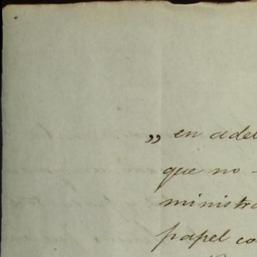 „ en adel
que no
ministra
papel co